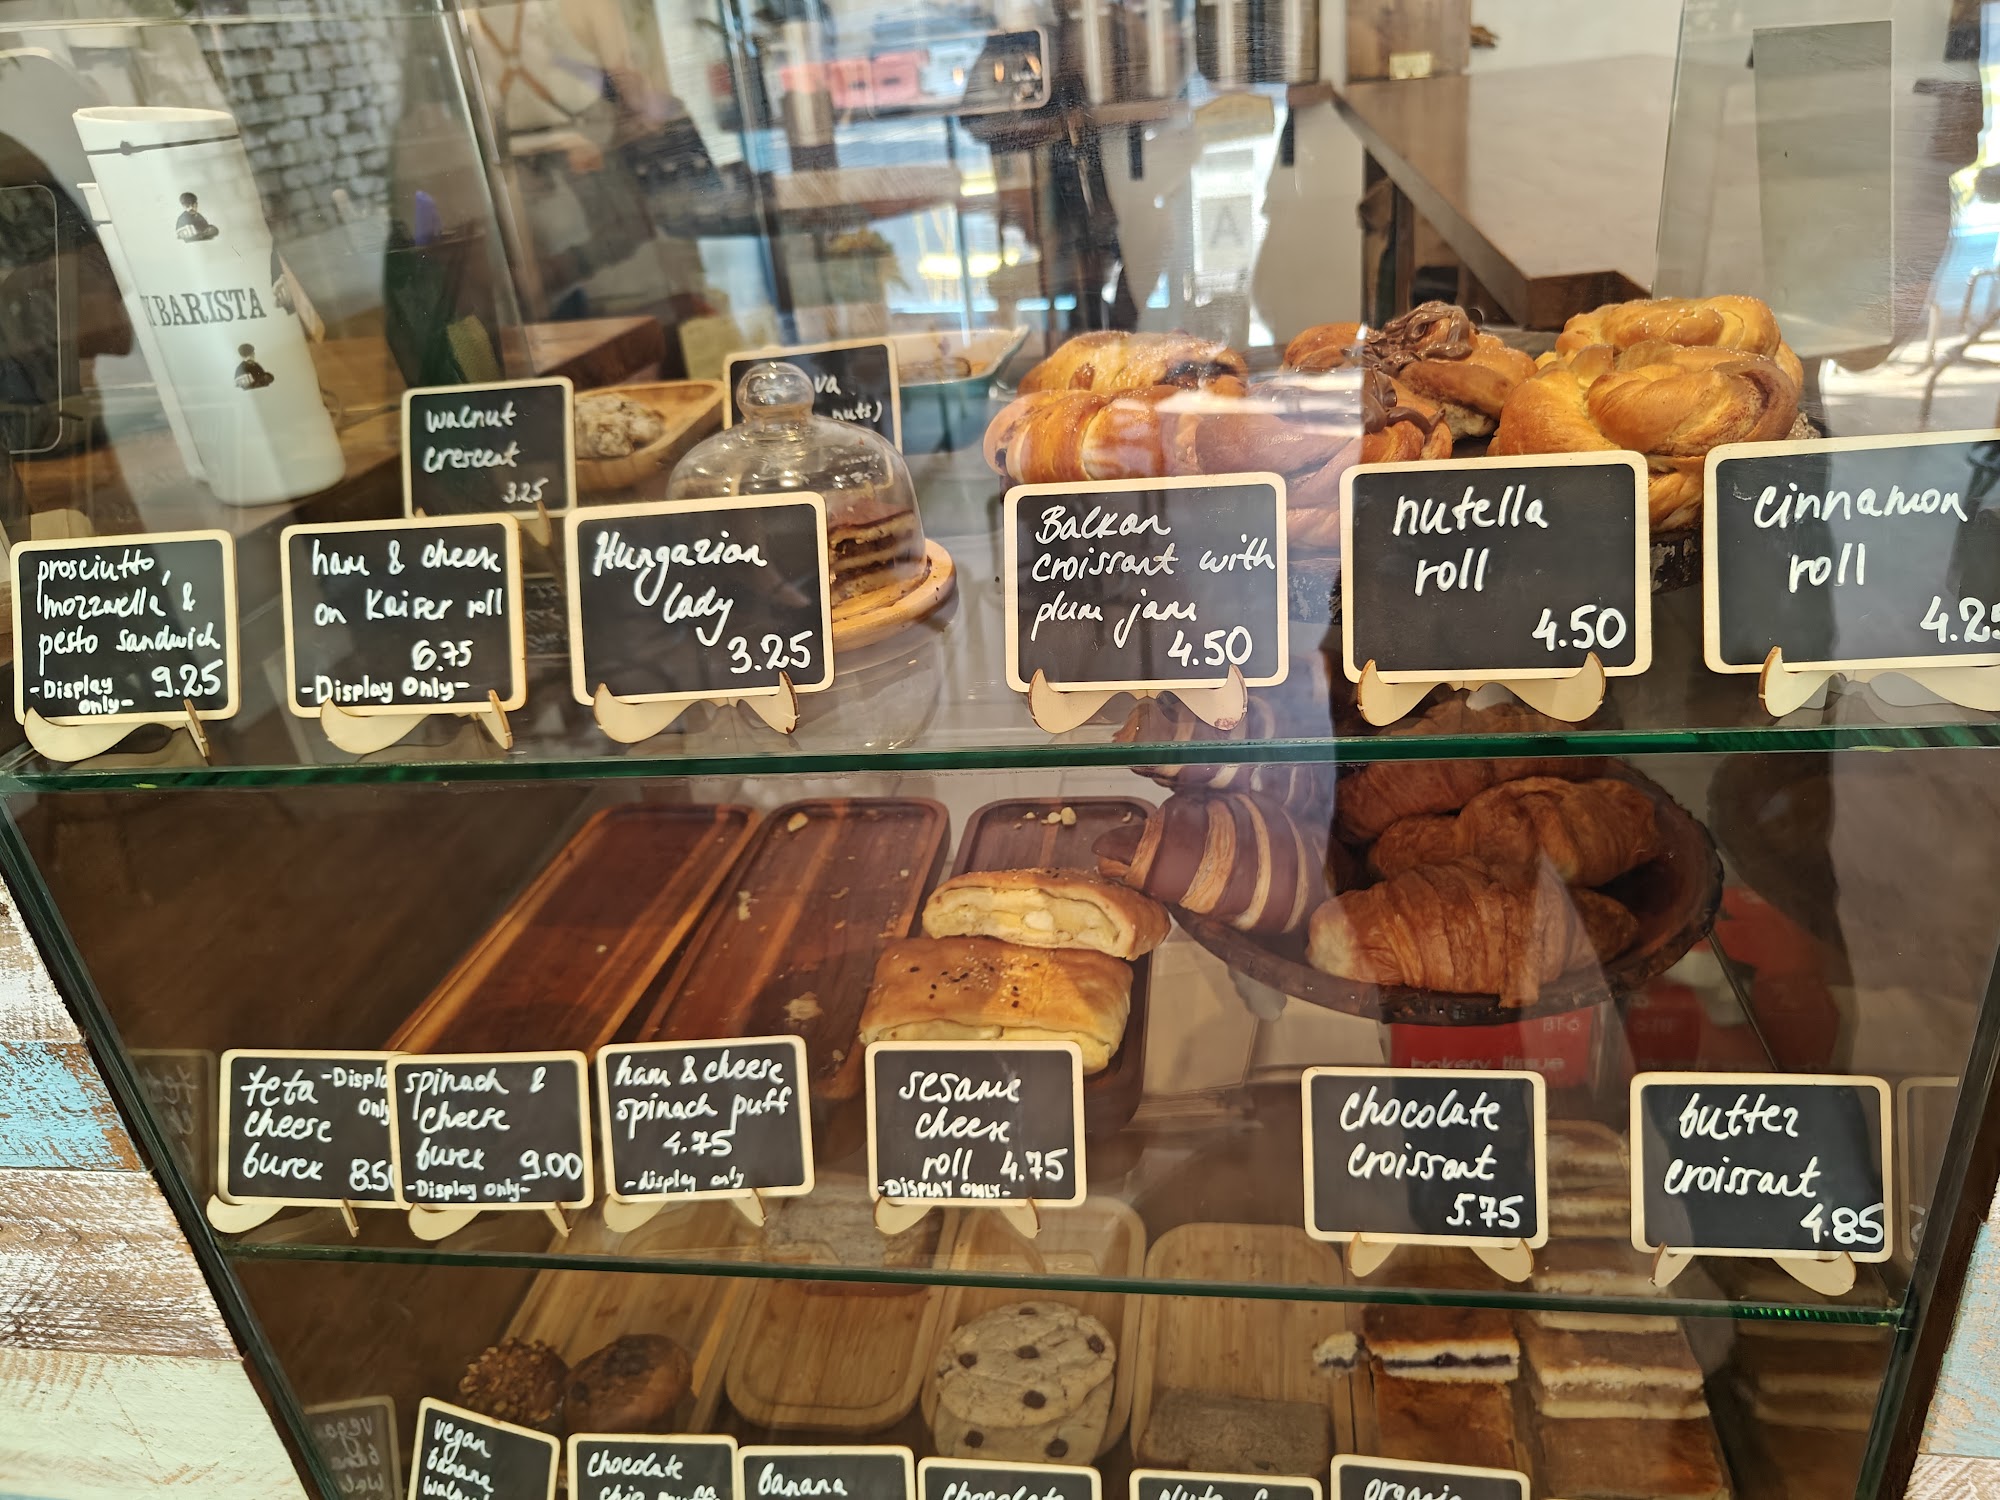 BARISTA
walnut
crescent
3.25
va
nuts)
prosciutto,
mozzarella &
pesto sandwich
-Display
only-
9.25
ham & cheese
on Kaiser roll
6.75
-Display Only-
Hungarian
lady
3.25
Balkan
croissant with
plum jam
4.50
nutella
roll
4.50
cinnamon
roll
4.25
A
bakery tissue
feta
cheese
burek
8.50
-Display
Only
spinach &
cheese
burek
9.00
-Display Only-
ham & cheese
spinach puff
4.75
-display only
sesame
cheese
roll 4.75
-DISPLAY ONLY-
chocolate
croissant
5.75
butter
croissant
4.85
vegan
banana
chocolate
chip
banana
chocolate
organic